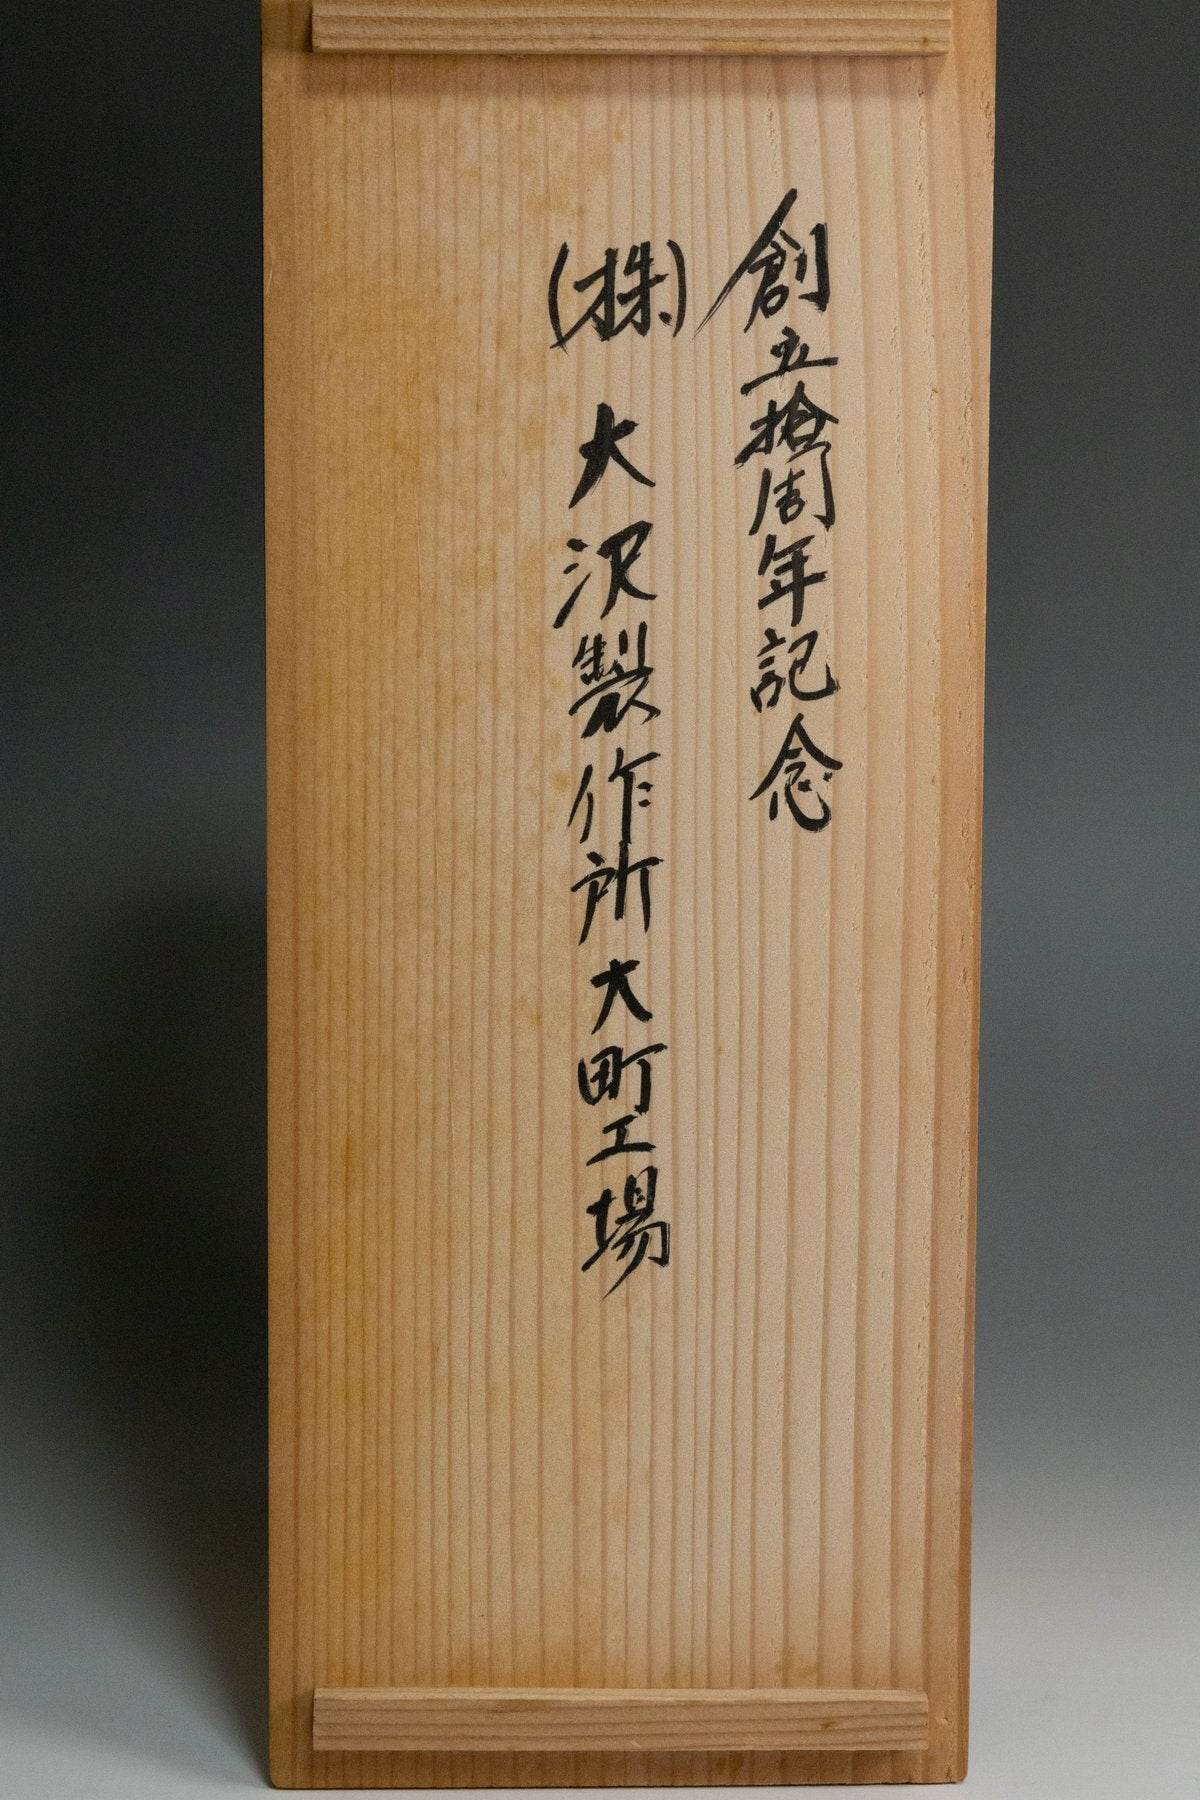 創立拾周年記念
(株)大沢製作所大町工場